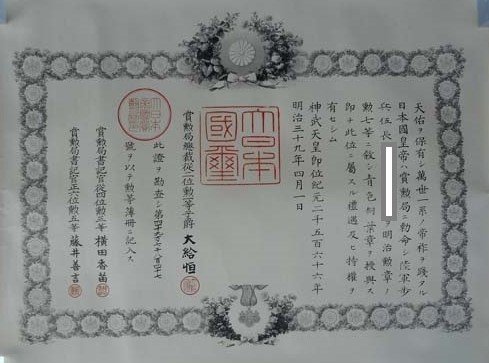 天佑ヲ保有シ萬世一系ノ帝祚ヲ踐タル
日本國皇帝ハ賞勲局ニ勅命シ陸軍歩
兵伍長 ヲ明治勲章ノ
勲七等ニ敍シ青色桐葉章ヲ授與ス
即チ此位ニ屬スル禮遇及ヒ特權ヲ
有セシム
神武天皇即位紀元二千五百六十六年
明治三十九年四月一日
大日本
國璽
賞勲局總裁從二位勲一等子爵 大給恒
此證ヲ勘査シ第
號ヲ以テ勲等簿冊ニ記入ス
賞勲局書記官從四位勲三等 横田香苗
賞勲局書記官正六位勲五等 藤井善言